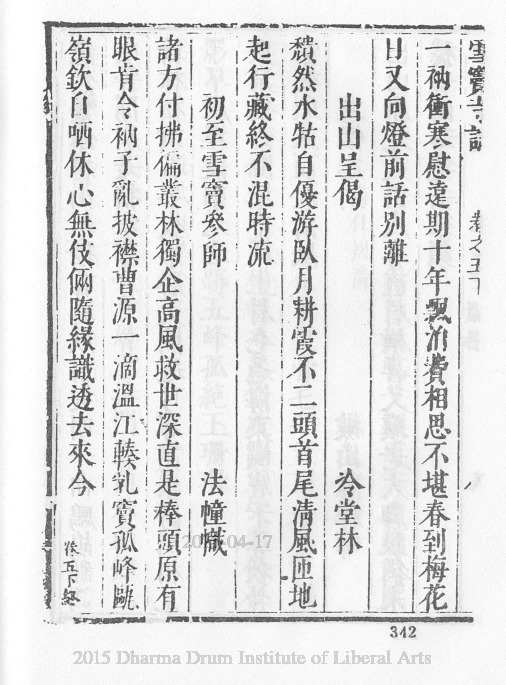 雪竇寺誌 卷之五下
一衲衝寒慰遠期十年飄泊費相思不堪春到梅花
日又向燈前話別離
出山呈偈 冷堂林
頹然水牯自優游臥月耕霞不二頭首尾清風匝地
起行藏終不混時流
初至雪竇參師 法幢幟
諸方付拂徧叢林獨企高風救世深直是棒頭原有
眼肯令衲子亂披襟曹源一滴溫江輳乳竇孤峰
嶺欽自哂休心無伎倆隨緣識透去來今
卷五下終
342
2015 Dharma Drum Institute of Liberal Arts